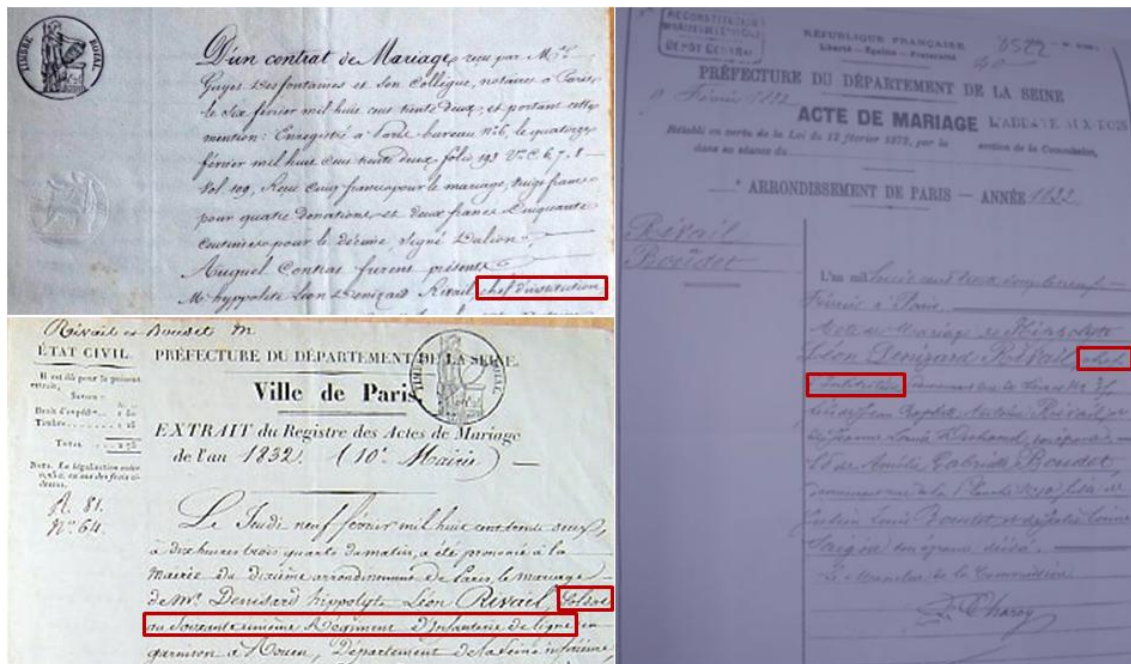 TIMBRE ROYAL
D'un contrat de Mariage, reçu par Me
Guyet Desfontaines et son Collègue, notaires à Paris
le Six février mil huit cent trente deux, et portant cette
mention: Enregistré à Paris bureau n°6, le quatorze
février mil huit cent trente deux folio 193 Vo C. 6, 7, 8
Vol 109, Reçu cinq francs pour le mariage, francs
pour quatre donations, et deux francs Cinquante
Centimes pour le décime, Signé
Auquel Contrat furent présents
Mr hyppolite Léon Denizard Rivail, chef d'institution,
Rivail et Boudet M
ÉTAT CIVIL.
Il est dû pour le présent
extrait,
Savoir:
Droit d'expédon
Timbre
TOTAL
NOTA. La légalisation coûte
A. 81.
N° 64.
PRÉFECTURE DU DÉPARTEMENT DE LA SEINE.
Ville de Paris
TIMBRE ROYAL
EXTRAIT du Registre des Actes de Mariage
de l'an 1832. (10e Mairie)
Le Jeudi neuf février mil huit cent trente deux,
à dix heures trois quarts du matin, a été prononcé à la
Mairie du dixième arrondissement de Paris, le mariage
de Mr Denisard hippolyte Léon Rivail, Soldat
au Soixante unième Régiment d'Infanterie de ligne en
garnison à Rouen, Département de la Seine inférieure,
RECONSTITUTION
DES ACTES DE L'ÉTAT CIVIL
DÉPÔT CENTRAL
RÉPUBLIQUE FRANÇAISE
Liberté — Égalité — Fraternité
PRÉFECTURE DU DÉPARTEMENT DE LA SEINE
9 Février 1832
ACTE DE MARIAGE L'ABBAYE AUX BOIS
Rétabli en vertu de la Loi du 12 février 1872, par la section de la Commission,
dans sa séance du
ARRONDISSEMENT DE PARIS — ANNÉE 1832
Rivail
Boudet
L'an mil huit cent trente deux le neuf
Février à Paris
Acte de Mariage de Hippolyte
Léon Denizard Rivail, chef
d'institution, demeurant rue de Sèvres No 35
fils de Jean Baptiste Antoine Rivail et
de Jeanne Louise Duhamel, son épouse
Et de Amélie Gabrielle Boudet,
demeurant rue de la Planche No fille de
Julien Louis Boudet et de Julie Louise
Seigneat son épouse
Le Membre de la Commission